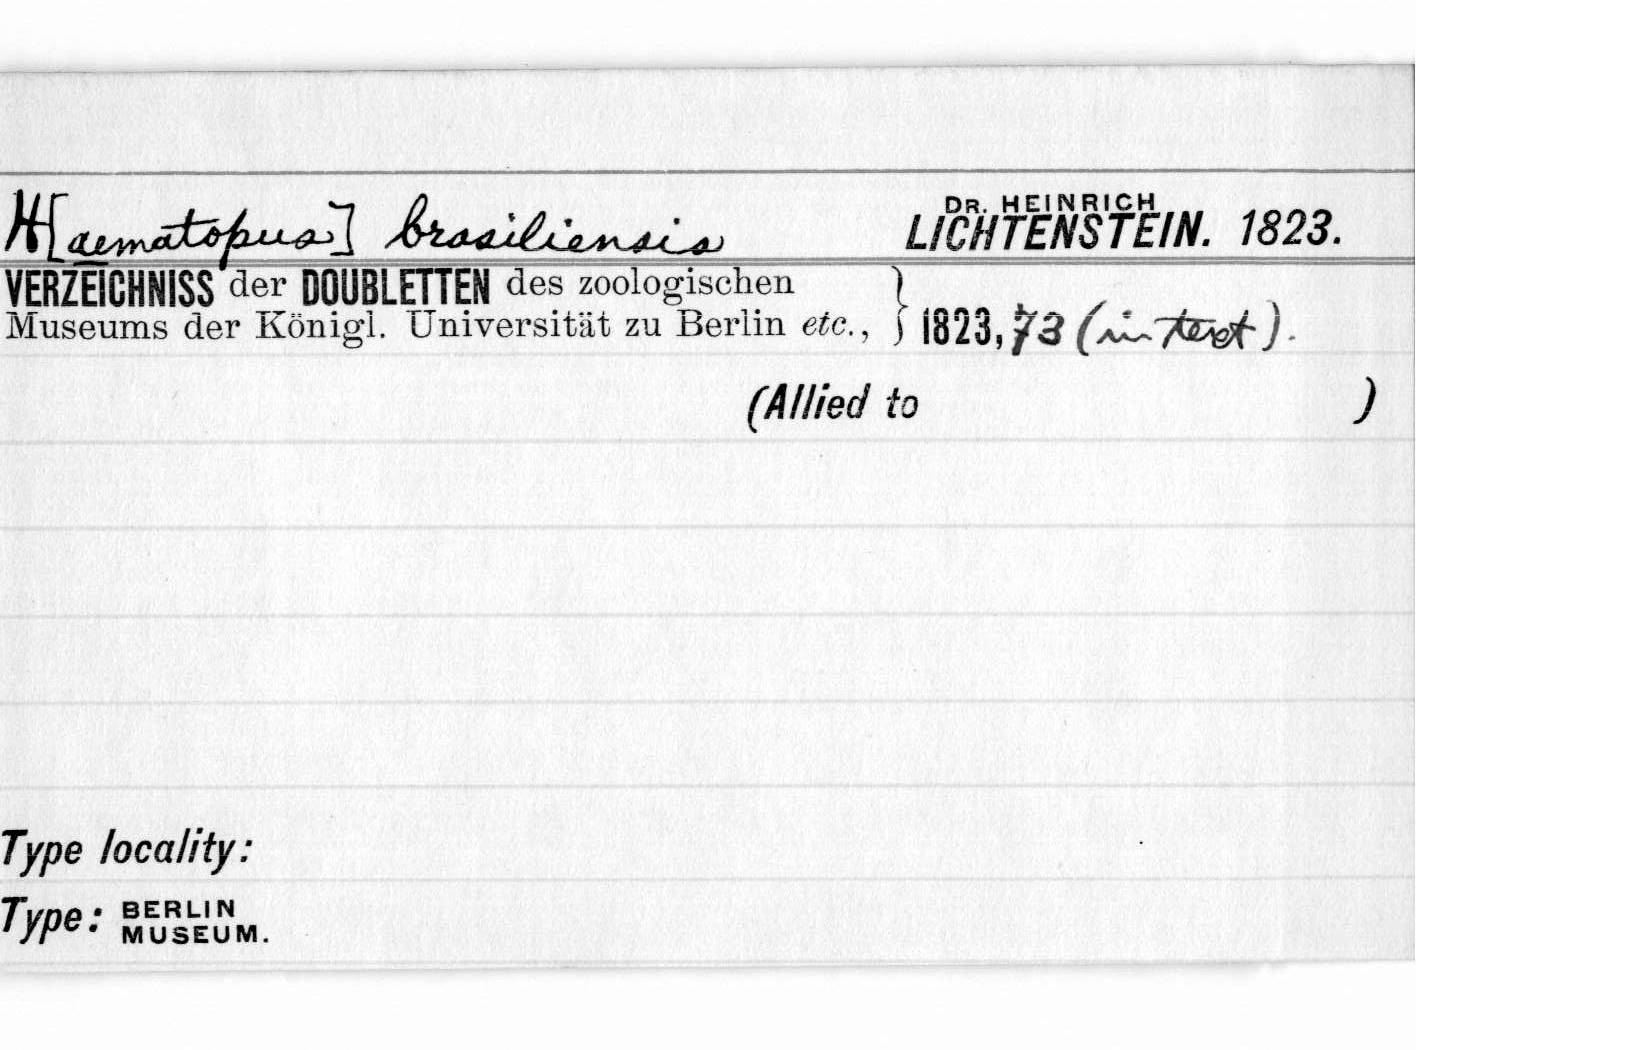 H[aematopus] brasiliensis DR. HEINRICH LICHTENSTEIN. 1823.
VERZEICHNISS der DOUBLETTEN des zoologischen
Museums der Königl. Universität zu Berlin etc., } 1823, 73 (in text).
(Allied to )
Type locality:
Type: BERLIN MUSEUM.